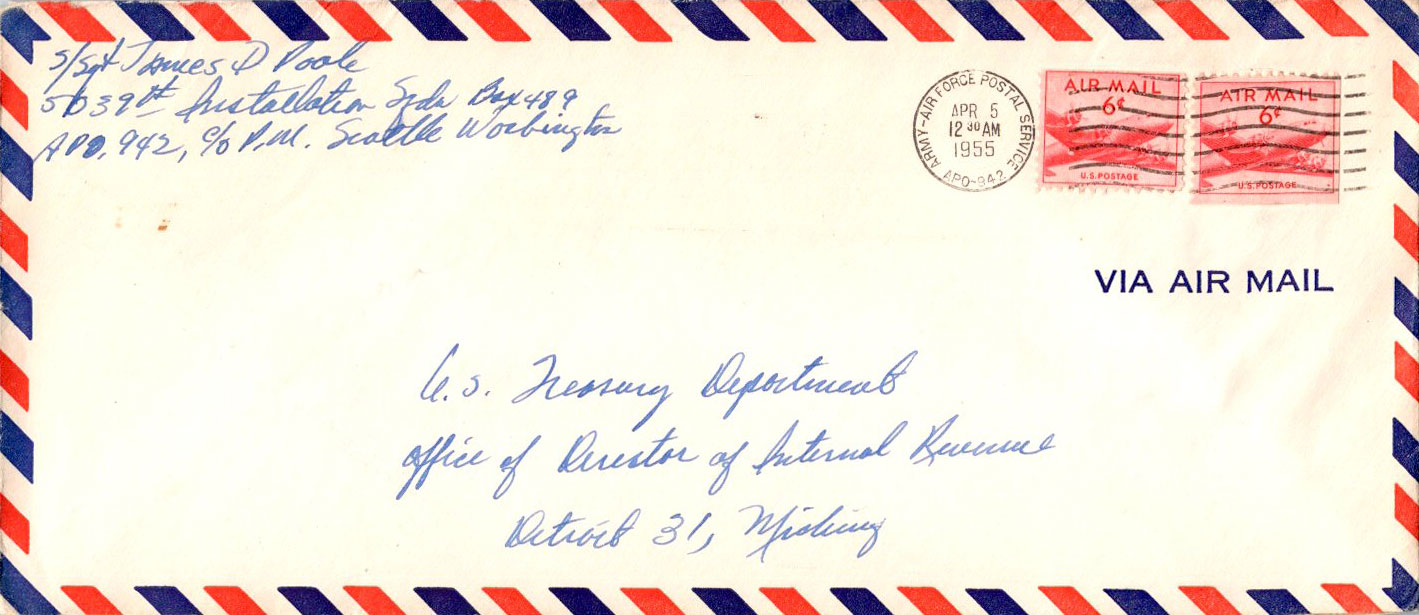 S/Sgt James D Poole
5039th Installation Sqdn Box 489
APO. 942, c/o P.M. Seattle Washington
ARMY-AIR FORCE POSTAL SERVICE
APR 5
12 30 AM
1955
APO-942
AIR MAIL
6¢
U.S. POSTAGE
AIR MAIL
6¢
U.S. POSTAGE
VIA AIR MAIL
U.S. Treasury Department
Office of Director of Internal Revenue
Detroit 31,